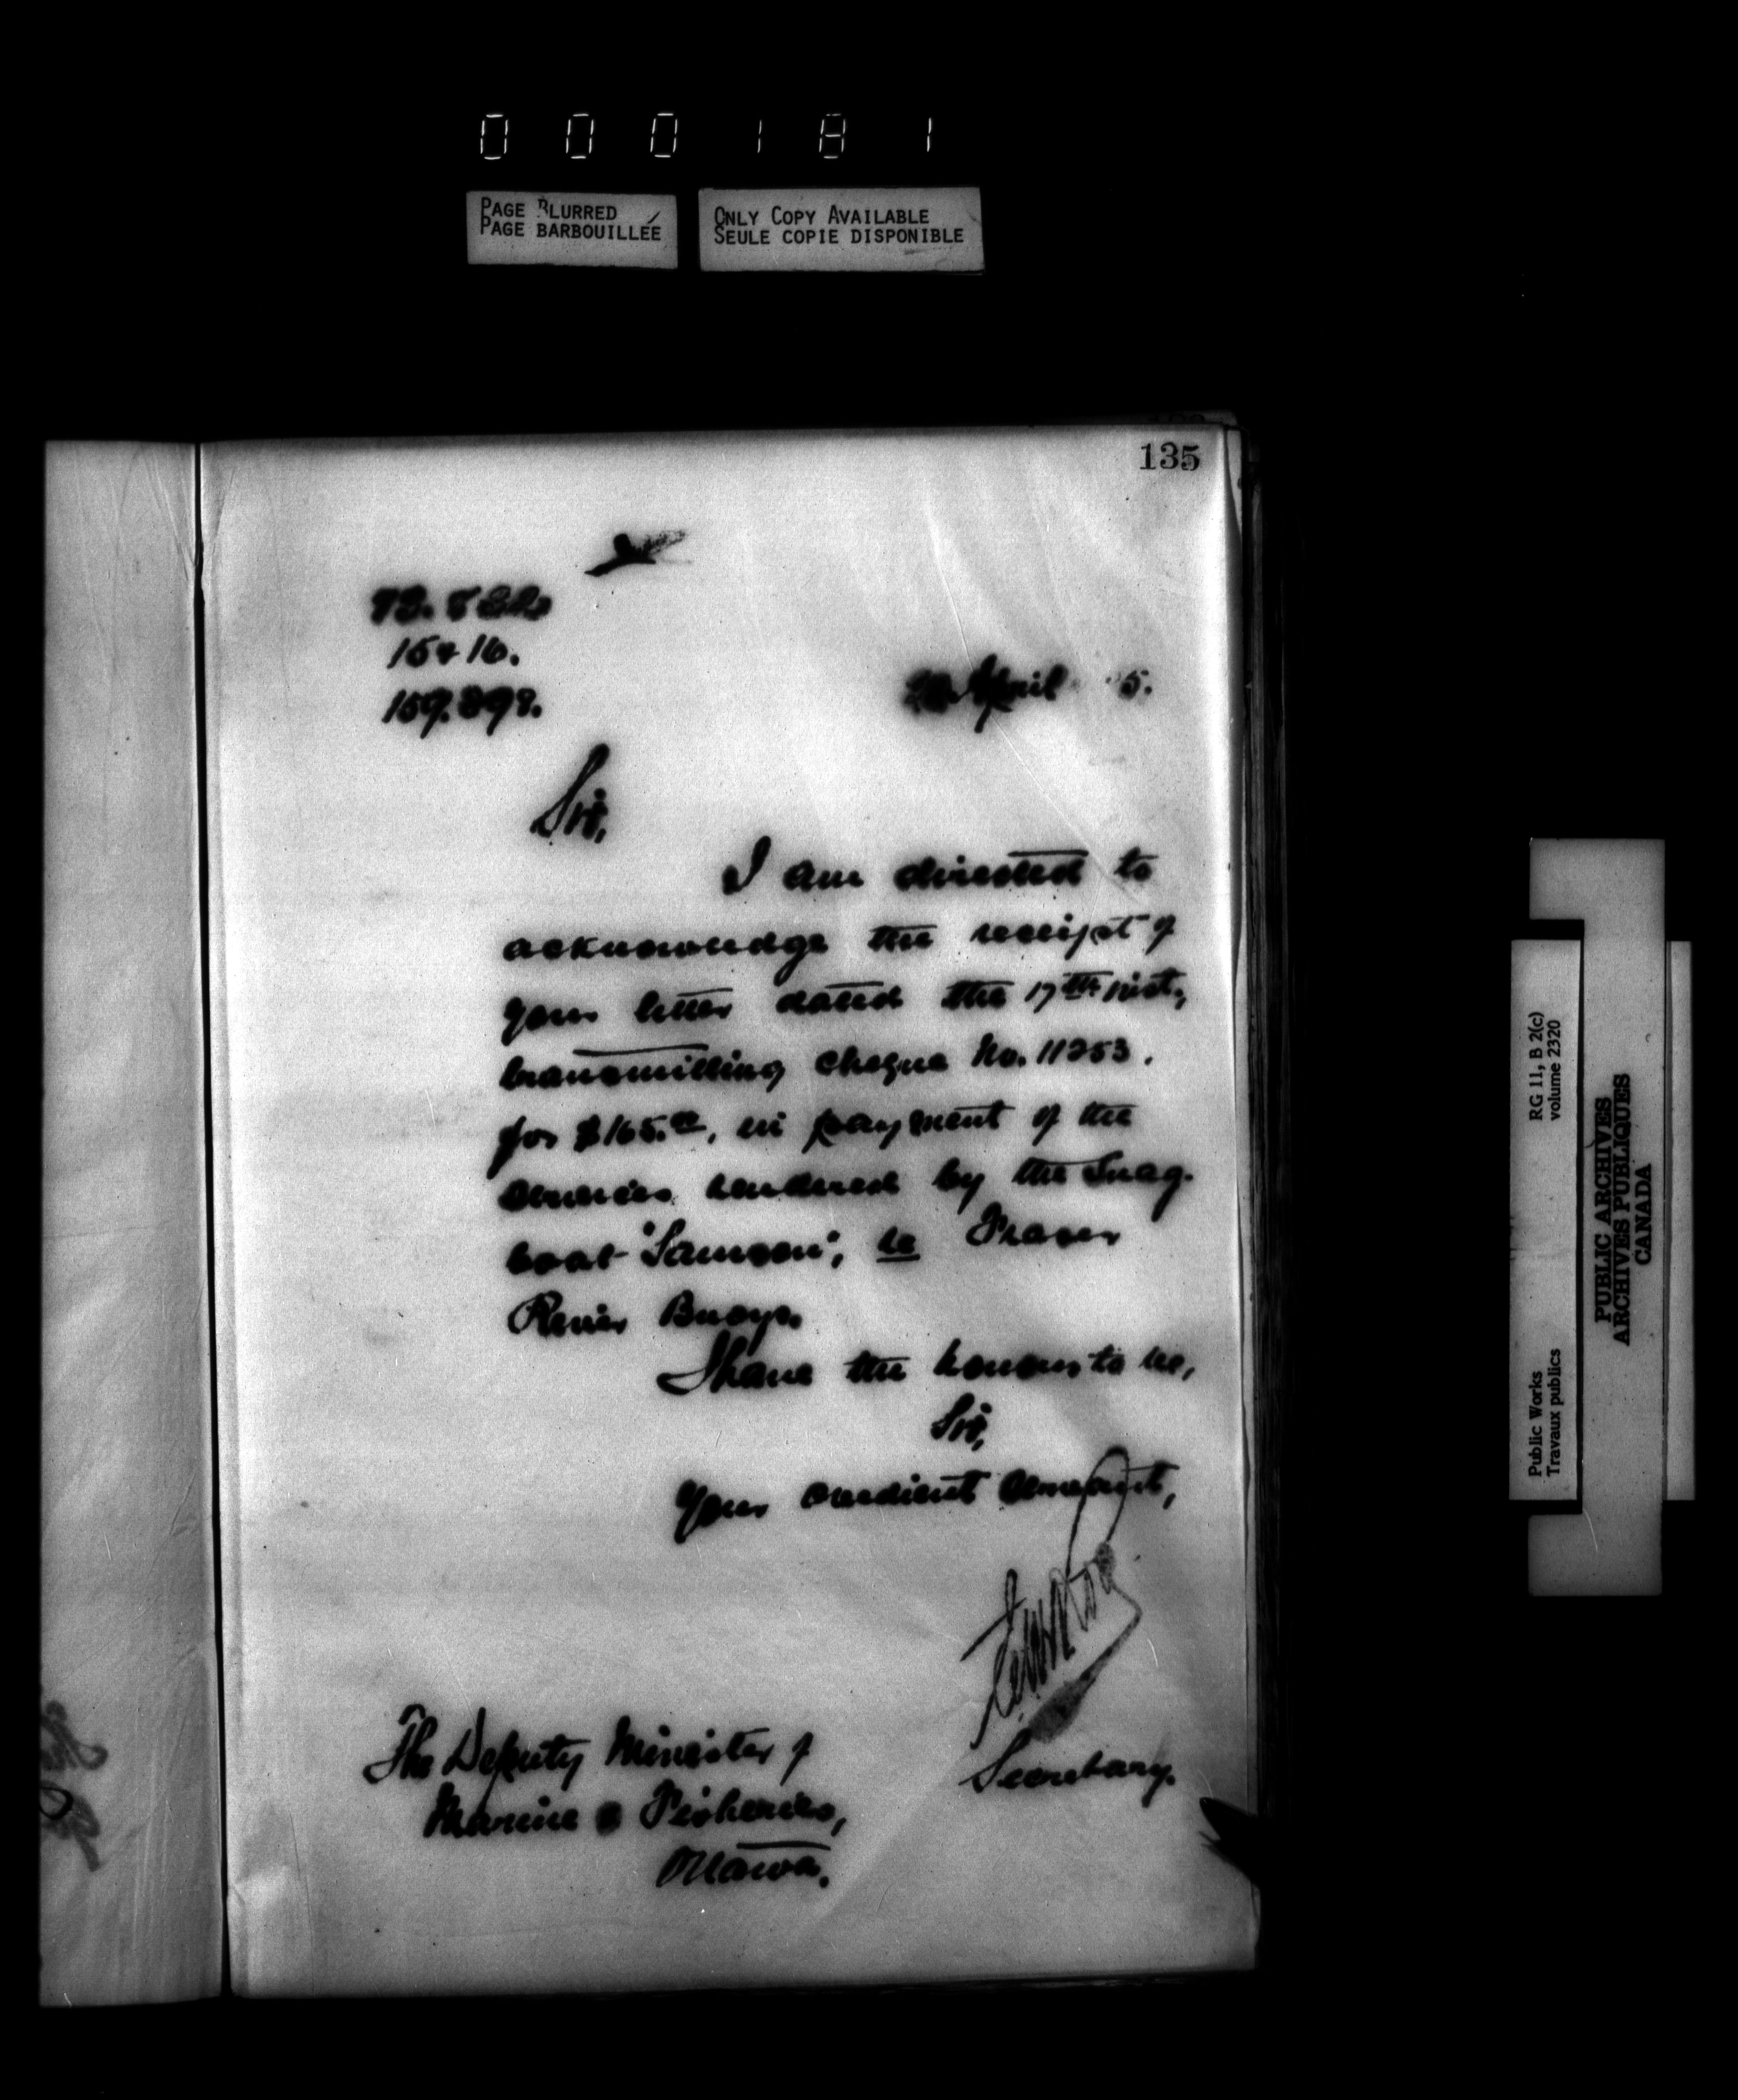 000181
PAGE BLURRED
PAGE BARBOUILLÉE
ONLY COPY AVAILABLE
SEULE COPIE DISPONIBLE
135
15416.
159.898.
April 5.
Sir,
I am directed to
acknowledge the receipt of
your letter dated the 17th inst.,
transmitting cheque No. 11253.
for $165.00, in payment of the
services rendered by the Snag-
boat "Samson", re Fraser
River Buoys.
I have the honour to be,
Sir,
Your obedient servant,
Secretary.
The Deputy Minister of
Marine & Fisheries,
Ottawa.
RG 11, B 2(c)
volume 2320
Public Works
Travaux publics
PUBLIC ARCHIVES
ARCHIVES PUBLIQUES
CANADA